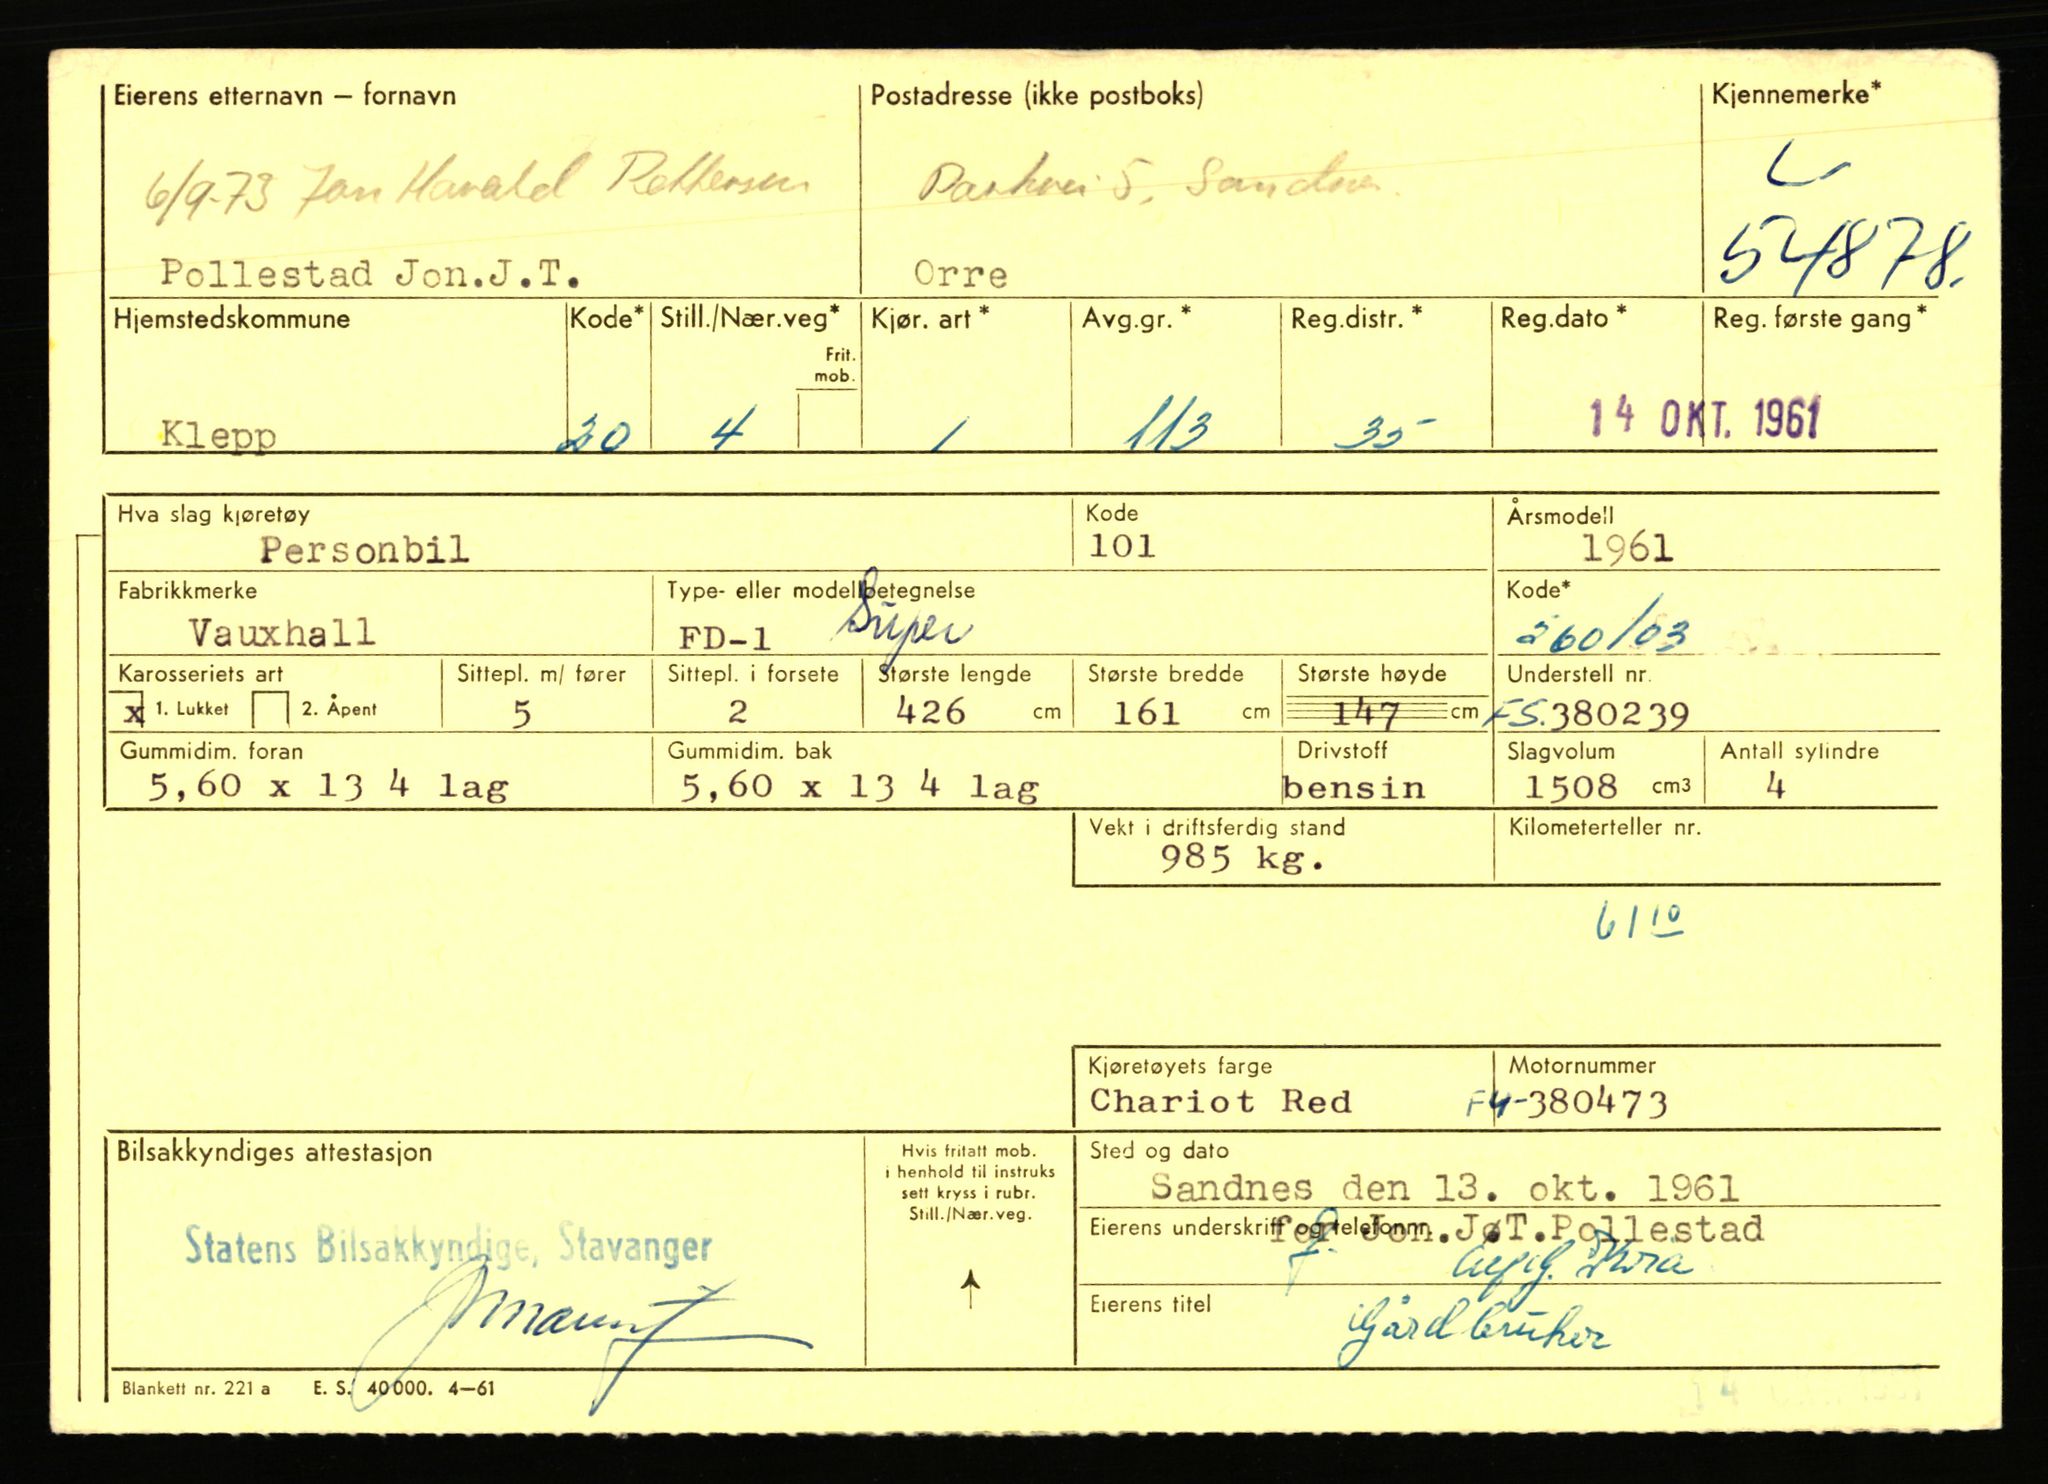 Eierens etternavn – fornavn Postadresse (ikke postboks) Kjennemerke*
6/9-73 Jan Harald Pettersen Parkvei 5, Sandnes L
54878.
Pollestad Jon.J.T. Orre
Hjemstedskommune Kode* Still./Nær.veg* Kjør. art * Avg.gr. * Reg.distr. * Reg.dato * Reg. første gang *
Frit.
mob.
Klepp 20 4 1 113 35 14 OKT. 1961
Hva slag kjøretøy Kode Årsmodell
Personbil 101 1961
Fabrikkmerke Type- eller modellbetegnelse Kode*
Vauxhall FD-1 Super 260/03
Karosseriets art Sittepl. m/ fører Sittepl. i forsete Største lengde Største bredde Største høyde Understell nr.
x 1. Lukket 2. Åpent 5 2 426 cm 161 cm 147 cm FS.380239
Gummidim. foran Gummidim. bak Drivstoff Slagvolum Antall sylindre
5,60 x 13 4 lag 5,60 x 13 4 lag bensin 1508 cm3 4
Vekt i driftsferdig stand Kilometerteller nr.
985 kg.
61 10
Kjøretøyets farge Motornummer
Chariot Red F4-380473
Bilsakkyndiges attestasjon Hvis fritatt mob. Sted og dato
i henhold til instruks
sett kryss i rubr.
Still./Nær.veg.
Sandnes den 13. okt. 1961
Eierens underskrift og telefonnr. for Jon.JøT.Pollestad
Statens Bilsakkyndige, Stavanger
Eierens titel
Gårdbruker
Blankett nr. 221 a E. S. 40 000. 4–61